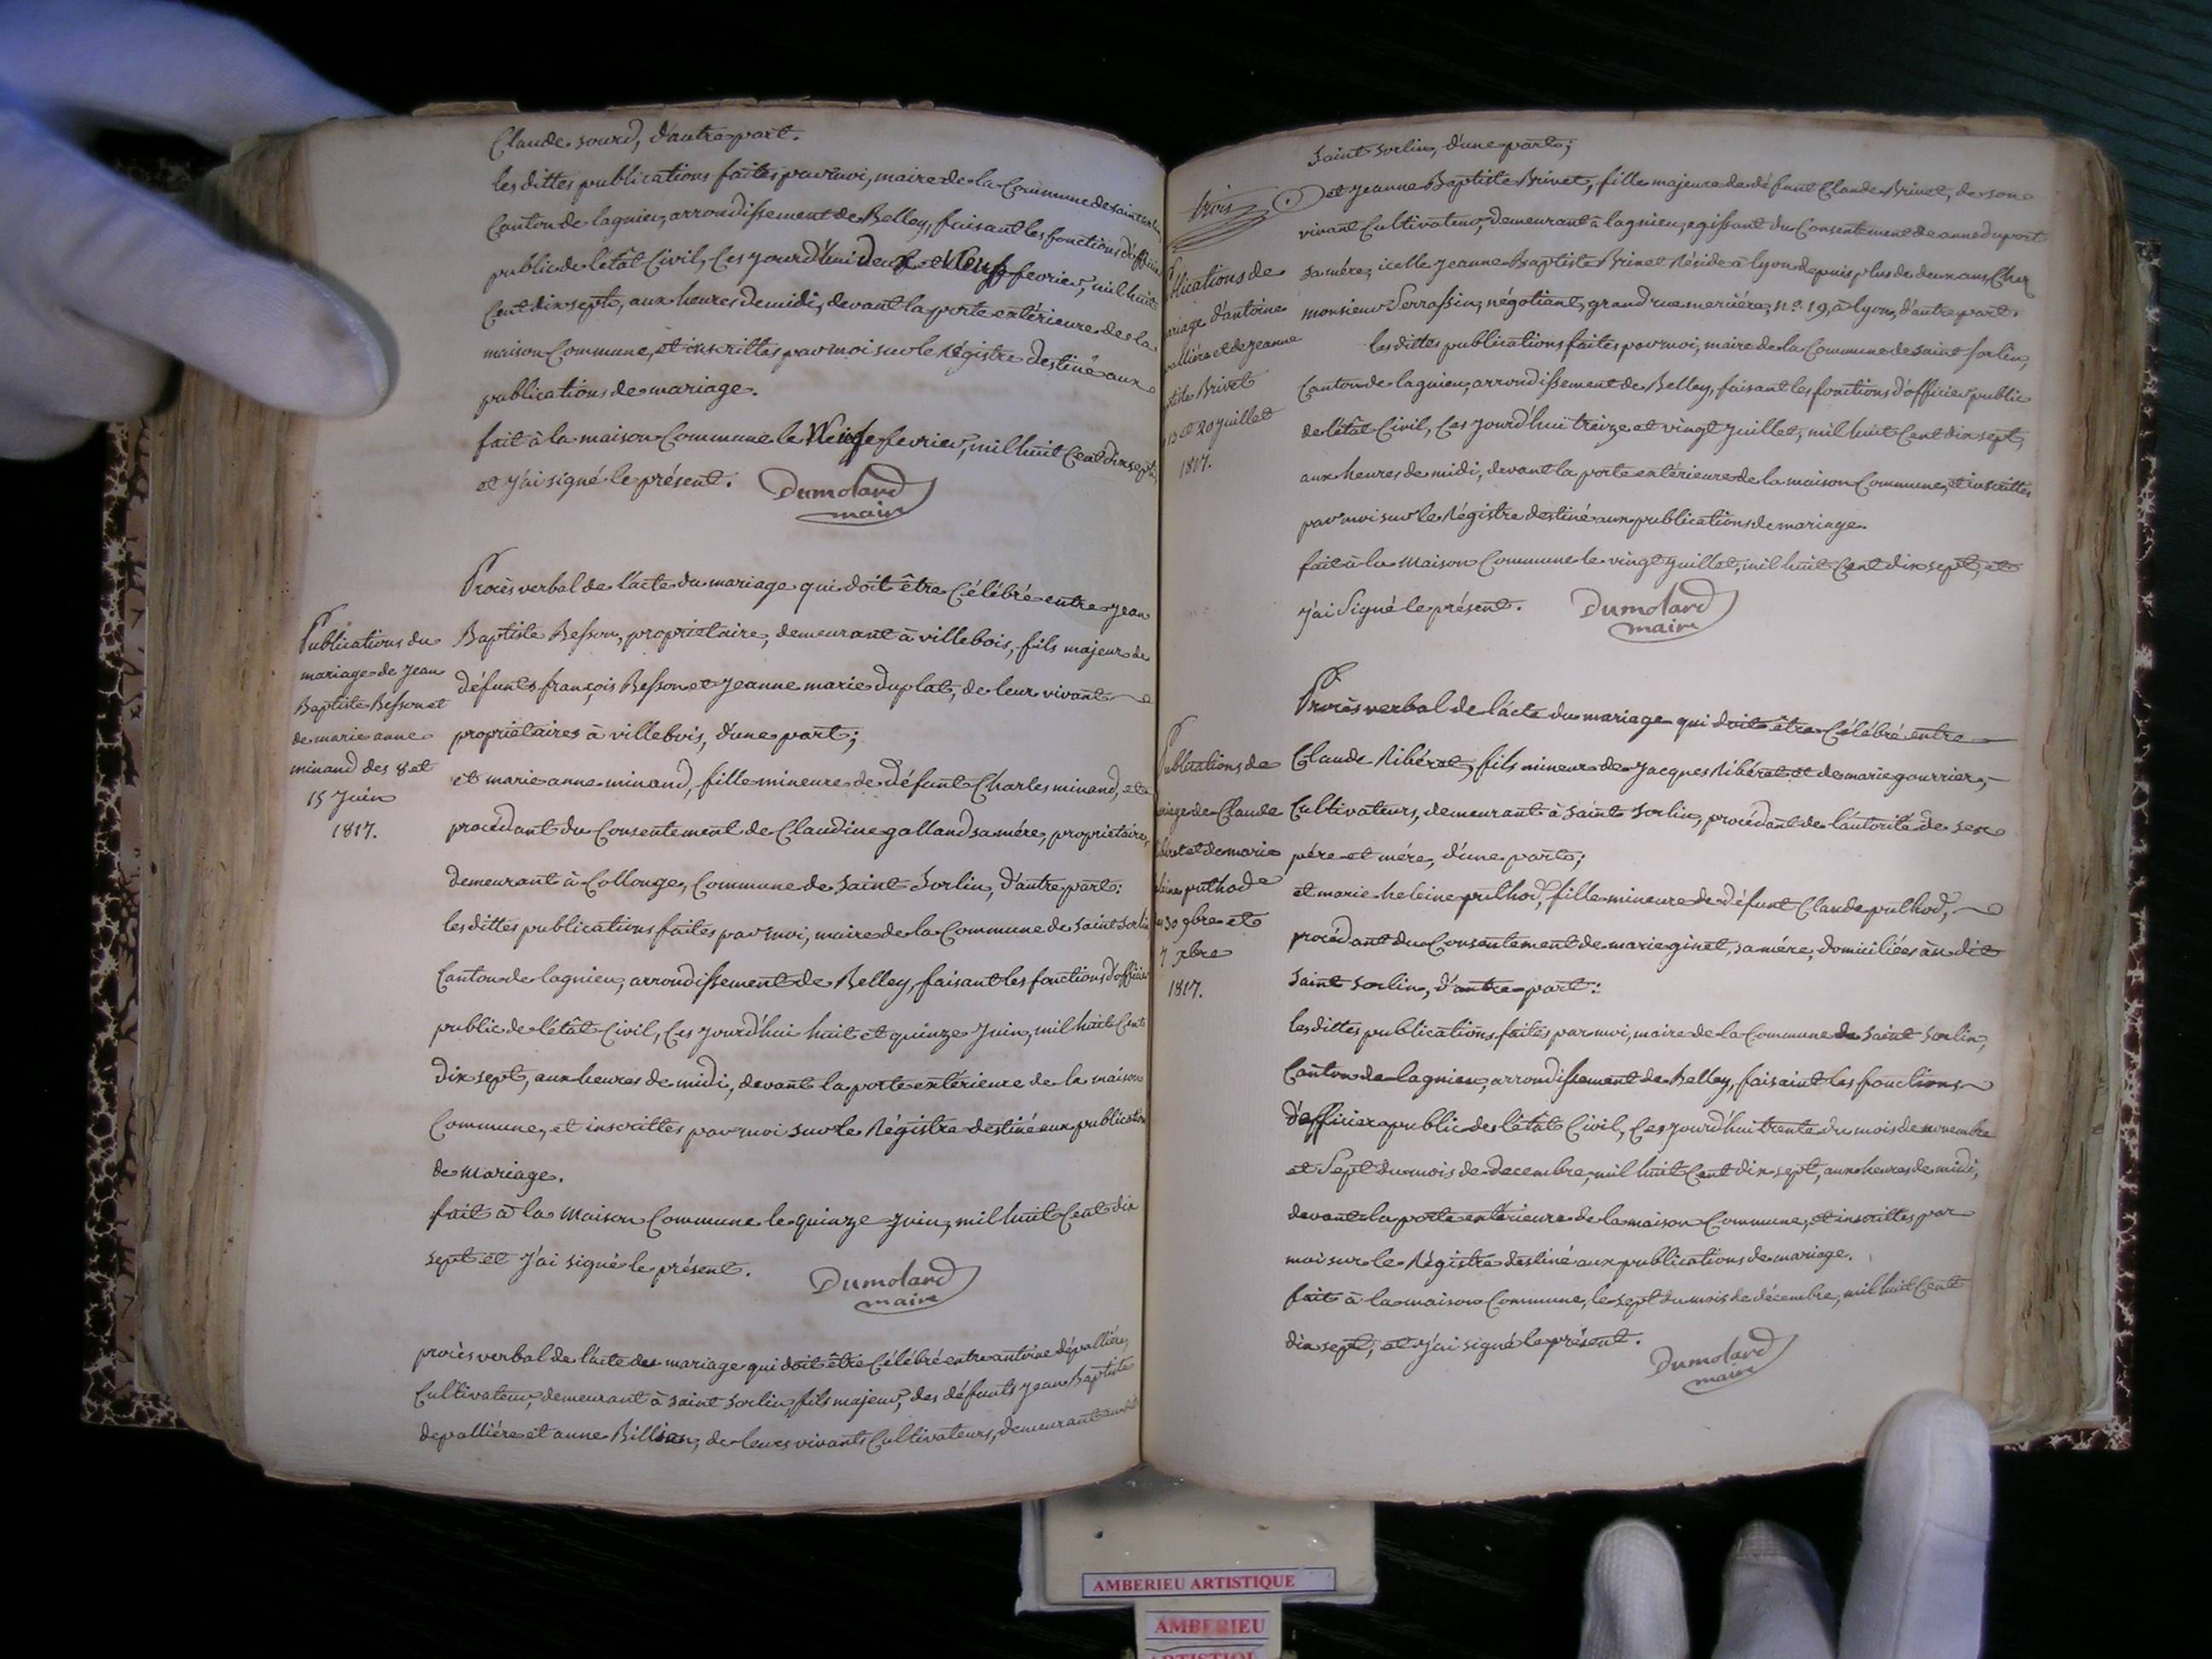 Claude Sourd, d'autre part.
les dittes publications faites par moi, maire de la Commune de Saint Sorlin
Canton de lagnieu, arrondissement de Belley, faisant les fonctions d'officier
public de l'état Civil, Ces Jourd'hui deux et Neuf fevrier, mil huit
Cent dix sept, aux heures de midi, devant la porte extérieure de la
maison Commune, et inscrittes par moi sur le Régistre destiné aux
publications de mariage.
fait à la maison Commune le Neuf fevrier, mil huit Cent dix sept,
et J'ai signé le présent. Dumolard
maire
Procès verbal de l'acte du mariage qui doit être Célébré entre Jean
Publications du
mariage de Jean
Baptiste Besson et
de marie anne
minand des 8 et
15 Juin
1817.
Baptiste Besson, propriétaire, demeurant à villebois, fils majeur de
défunts françois Besson et Jeanne marie Duplat, de leur vivant
propriétaires à villebois, d'une part;
et marie anne minand, fille mineure de défunt Charles minand, et
procédant du Consentement de Claudine galland sa mére, propriétaire,
demeurant à Collonge, Commune de Saint Sorlin, d'autre part:
les dittes publications faites par moi, maire de la Commune de Saint Sorlin
Canton de lagnieu, arrondissement de Belley, faisant les fonctions d'officier
public de l'étât Civil, Ces Jourd'hui huit et quinze Juin, mil huit Cent
dix sept, aux heures de midi, devant la porte extérieure de la maison
Commune, et inscrittes par moi sur le Régistre destiné aux publication
de mariage.
fait à la Maison Commune le quinze Juin, mil huit Cent dix
sept et J'ai signé le présent. Dumolard
maire
procès verbal de l'acte des mariage qui doit être Célébré entre antoine dépalliére,
Cultivateur, demeurant à Saint Sorlin, fils majeur, des défunts Jean Baptiste
depalliére et anne Billion, de leurs vivants Cultivateurs, demeurant
Saint Sorlin, d'une part;
trois
et Jeanne Baptiste Brivet, fille majeure de défunt Claude Brivet, de son
vivant Cultivateur, demeurant à lagnieu, agissant du Consentement de anne duport
sa mére, icelle Jeanne Baptiste Brivet Réside à lyon depuis plus de deux ans, Chez
monsieur Serrassin, négotiant, grand rue merciére, N.º 19, à lyon, d'autre part.
blications de
ariage d'antoine
palliére et de Jeanne
tiste Brivet
13 et 20 Juillet
1817.
les dittes publications faites par moi, maire de la Commune de Saint Sorlin,
Canton de lagnieu, arrondissement de Belley, faisant les fonctions d'officier public
de l'étât Civil, Ces Jourd'hui treize et vingt Juillet, mil huit Cent dix sept,
aux heures de midi, devant la porte extérieure de la maison Commune, et inscrittes
par moi sur le Régistre destiné aux publications de mariage.
fait à la Maison Commune le vingt Juillet, mil huit Cent dix sept, et
J'ai Signé le présent. Dumolard
maire
Procès verbal de l'acte du mariage qui doit être Célébré entre
Publications de
riage de Claude
bérat et de marie
leine puthod
30 9bre et
7 xbre
1817.
Claude Ribérat, fils mineur de Jacques Ribérat et de marie gourrier,
Cultivateurs, demeurant à Saint Sorlin, procédant de l'autorité de ses
pére et mére, d'une part;
et marie heleine puthod, fille mineure de défunt Claude puthod,
procédant du Consentement de marie ginet, sa mére, domiciliées au dit
Saint Sorlin, d'autre part:
les dittes publications faites par moi, maire de la Commune de Saint Sorlin,
Canton de lagnieu, arrondissement de Belley, faisaint les fonctions
d'officier public de l'étât Civil, Ces Jourd'hui trente du mois de novembre
et Sept du mois de decembre, mil huit Cent dix sept, aux heures de midi,
devant la porte extérieure de la maison Commune, et inscrittes par
moi sur le Régistre destiné aux publications de mariage.
fait à la maison Commune, le sept du mois de décembre, mil huit Cent
dix sept, et J'ai signé le présent.
Dumolard
maire
AMBERIEU ARTISTIQUE
AMBERIEU
ARTISTIQUE